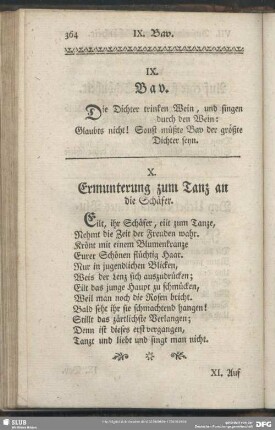 364 IX. Bav.
IX.
Bav.
Die Dichter trinken Wein, und singen
durch den Wein:
Glaubts nicht! Sonst müßte Bav der größte
Dichter seyn.
X.
Ermunterung zum Tanz an
die Schäfer.
Eilt, ihr Schäfer, eilt zum Tanze,
Nehmt die Zeit der Freuden wahr.
Krönt mit einem Blumenkranze
Eurer Schönen flüchtig Haar.
Nur in jugendlichen Blicken,
Weis der Lenz sich auszudrücken;
Eilt das junge Haupt zu schmücken,
Weil man noch die Rosen bricht.
Bald seht ihr sie schmachtend hangen!
Stillt das zärtlichste Verlangen;
Denn ist dieses erst vergangen,
Tanzt und liebt und singt man nicht.
XI. Auf
SLUB
DFG